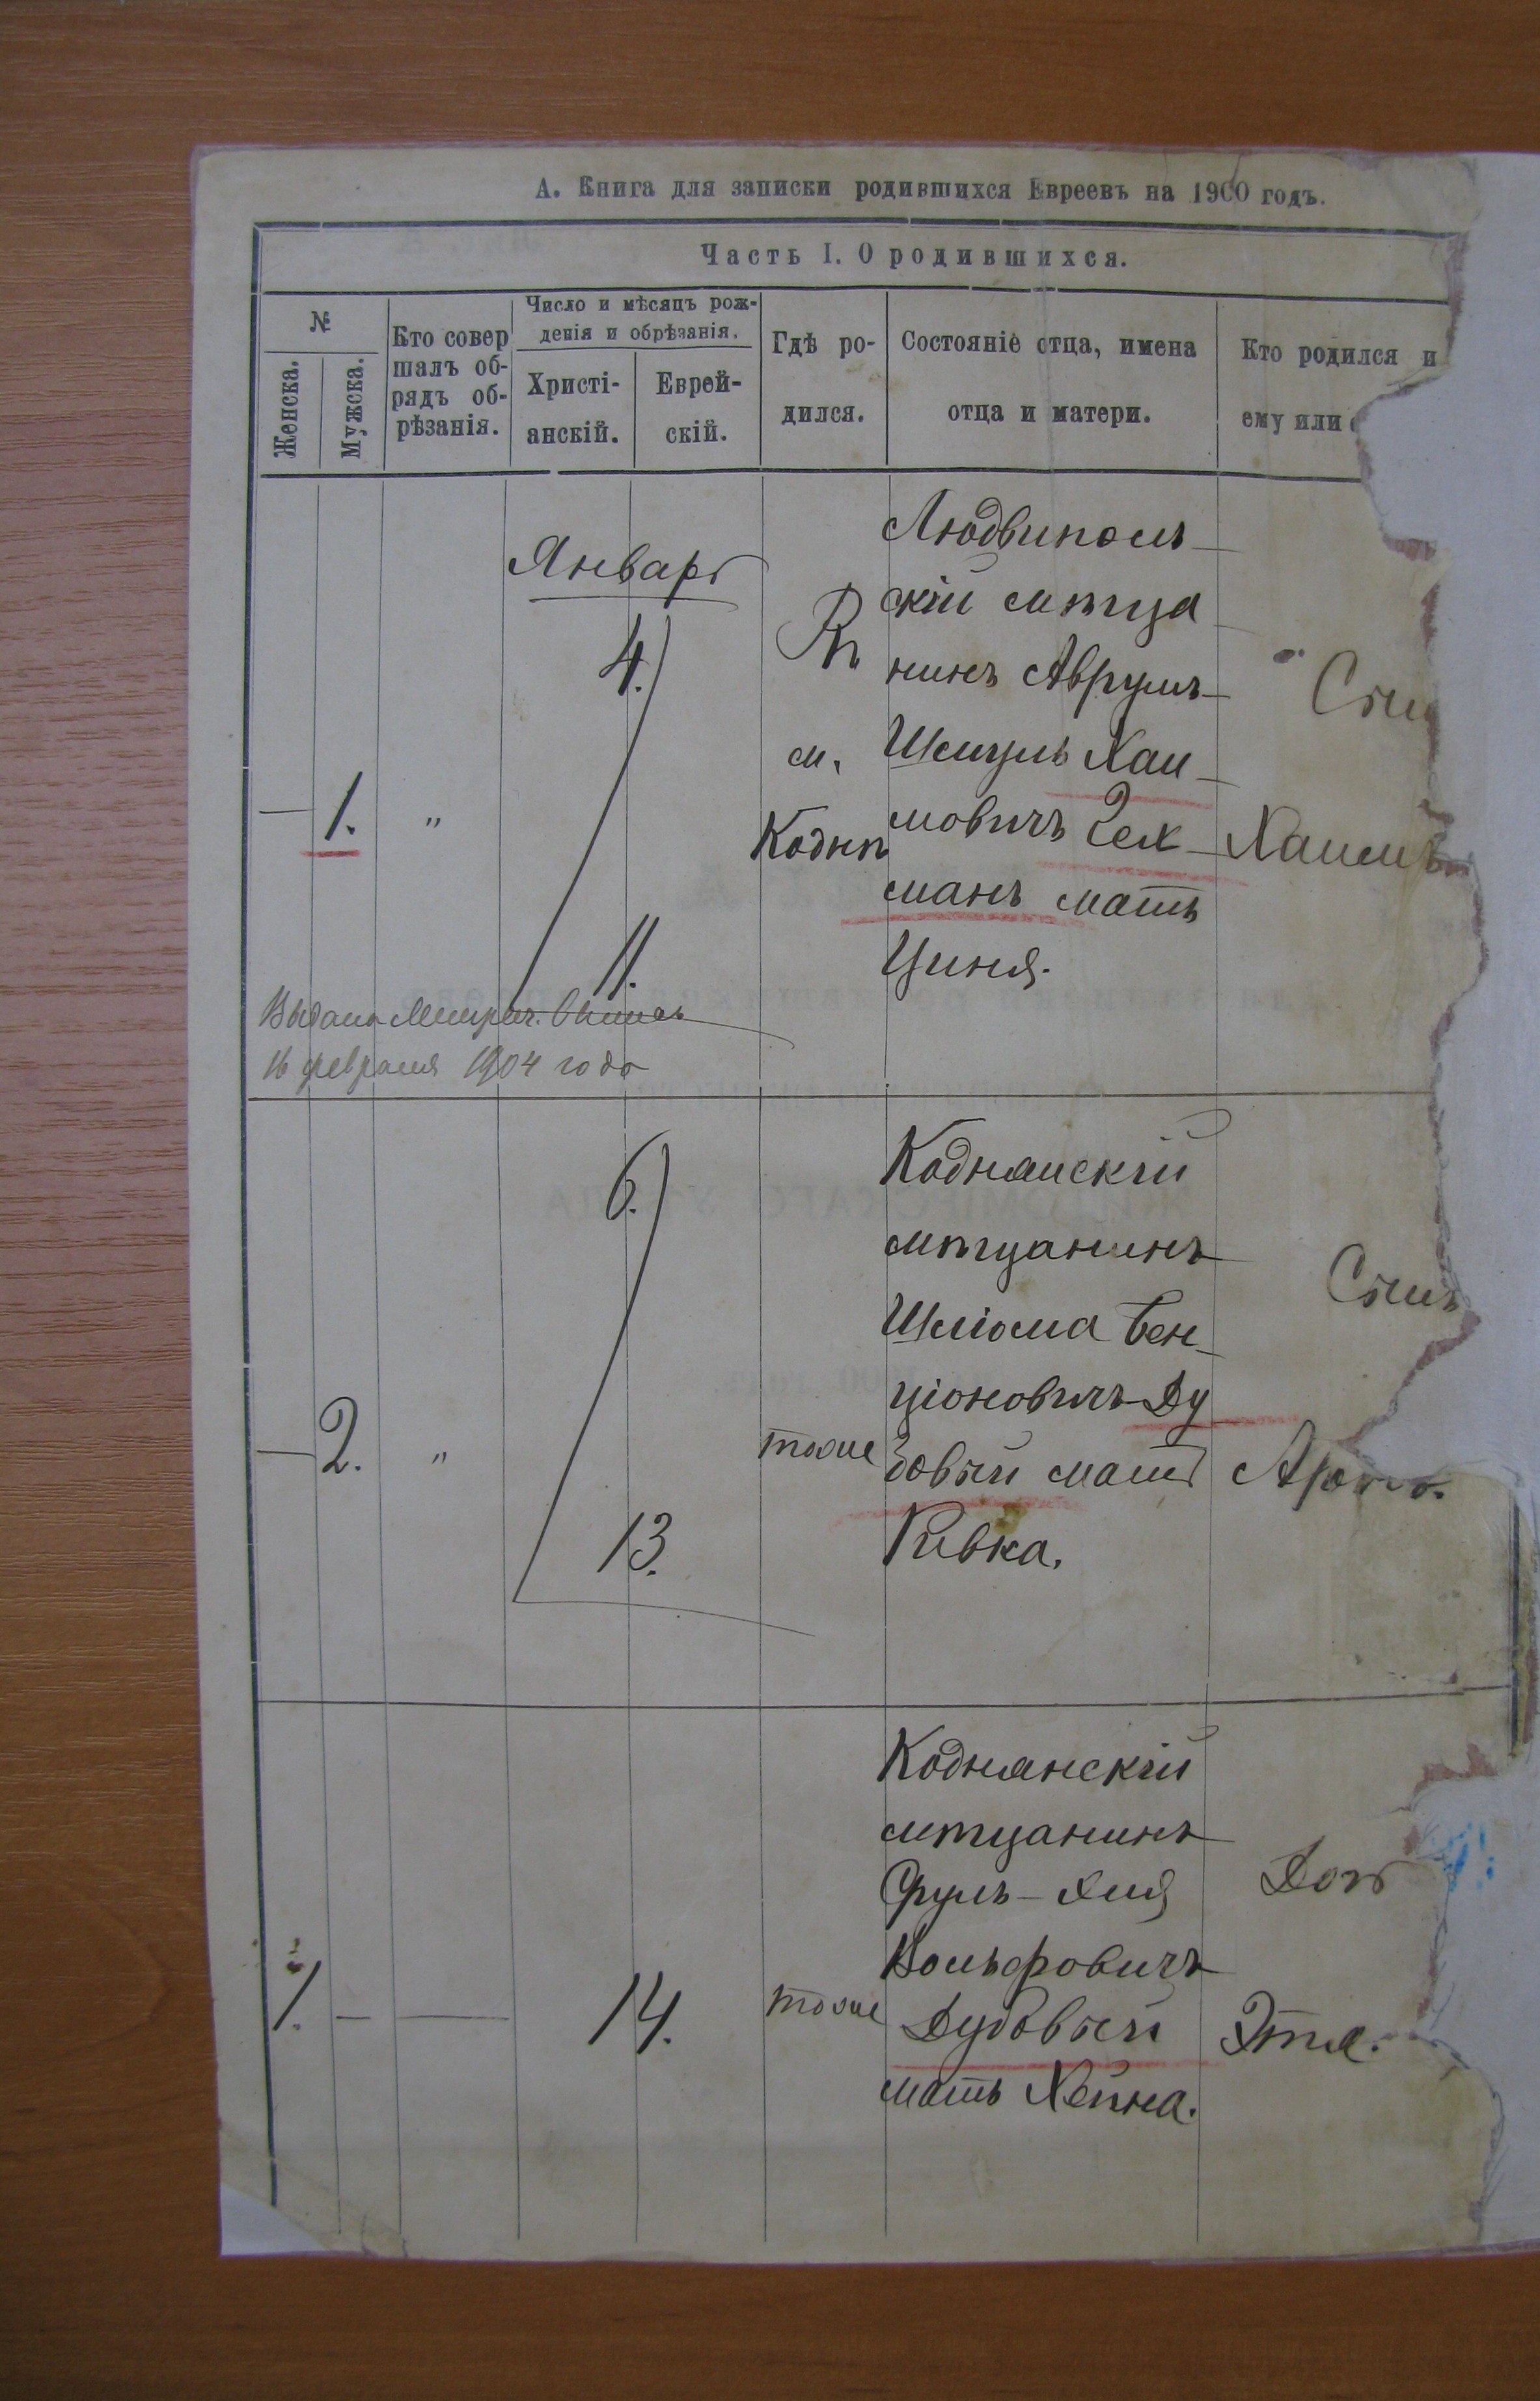 А. Книга для записки родившихся Евреевъ на 1900 годъ.
Часть I. О родившихся.
№
Женска.
Мужска.
Кто совер
шалъ об-
рядъ об-
рѣзанія.
Число и мѣсяцъ рож-
денія и обрѣзанія.
Христі-
анскій.
Еврей-
скій.
Гдѣ ро-
дился.
Состояніе отца, имена
отца и матери.
Кто родился и
ему или
Январь
1.
"
4.
11.
Въ
м.
Кодни
Людвиполь-
скій мѣща-
нинъ Аврумъ-
Шмуль Хаи-
мовичъ Гех-
манъ мать
Циня.
Сынъ
Хаимъ
Выдана Метрич. Выпись
16 февраля 1904 года
2.
"
6.
13.
тоже
Коднянскій
мѣщанинъ
Шліома Бен-
ціоновичъ Ду
бовый мать
Ривка.
Сынъ
Аронъ.
1.
14.
тоже
Коднянскій
мѣщанинъ
Сруль-Хия
Вольфовичъ
Дубовый
мать Хейна.
Дочь
Этя.